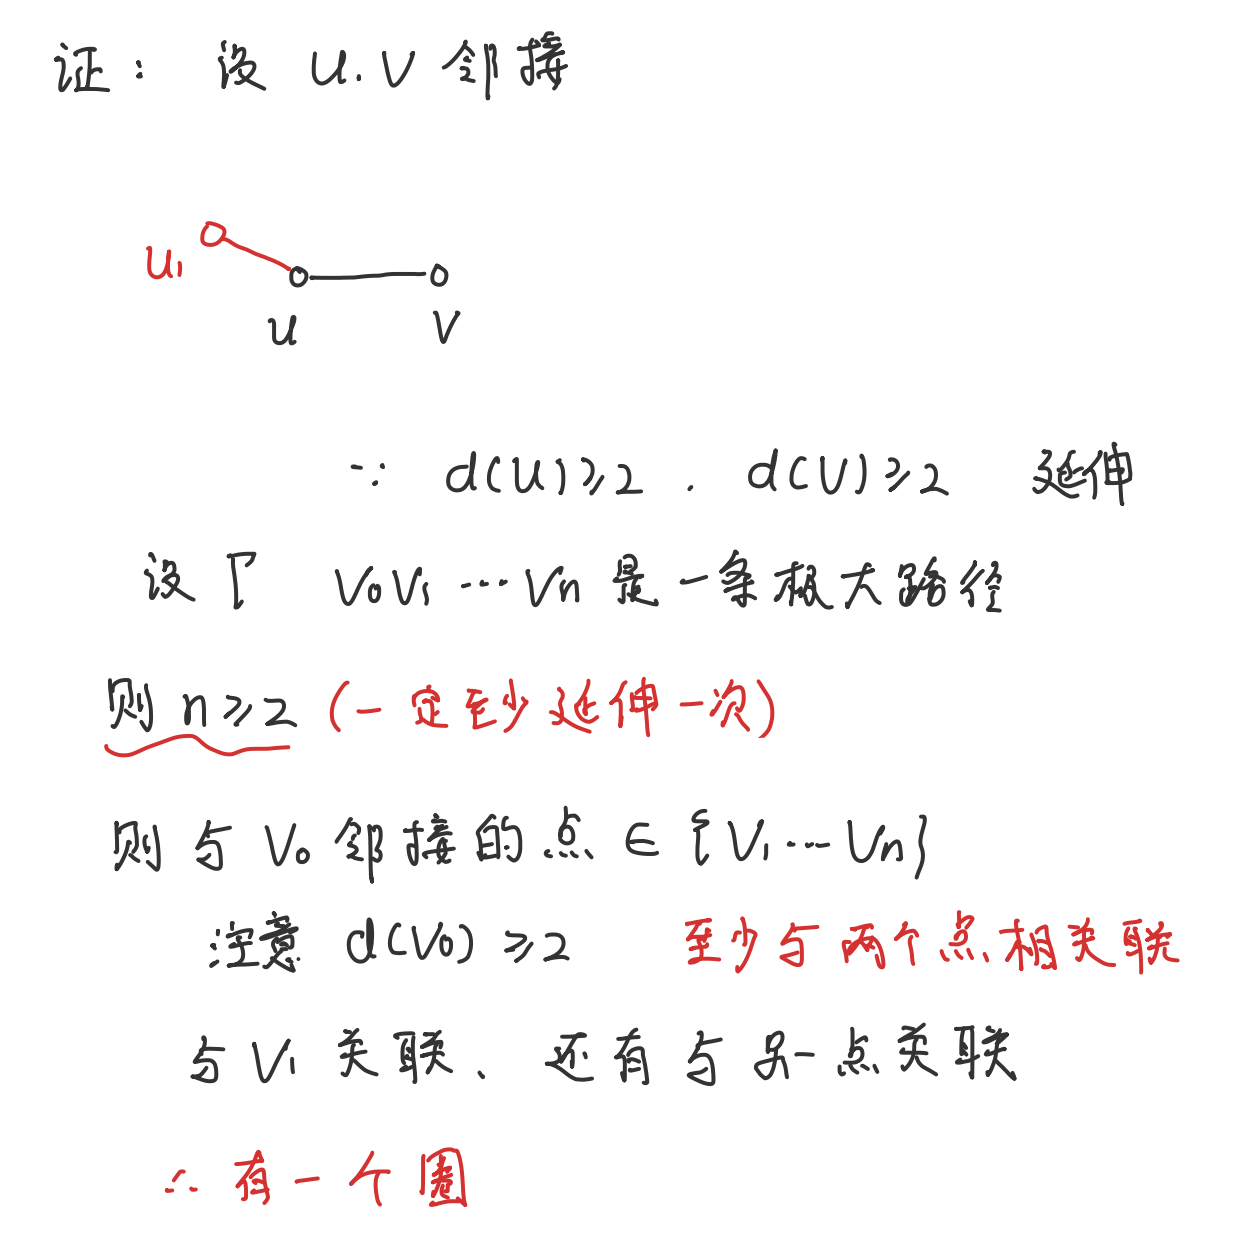 证： 设 u.v 邻接
u₁
u v
∵ d(u)≥2 . d(v)≥2 延伸
设 Γ v₀v₁…vn 是一条极大路径
则 n≥2 (一定至少延伸一次)
则与 v₀ 邻接的点 ∈ {v₁…vn}
注意 d(v₀) ≥2 至少与两个点相关联
与 v₁ 关联、还有与另一点关联
∴ 有一个圈